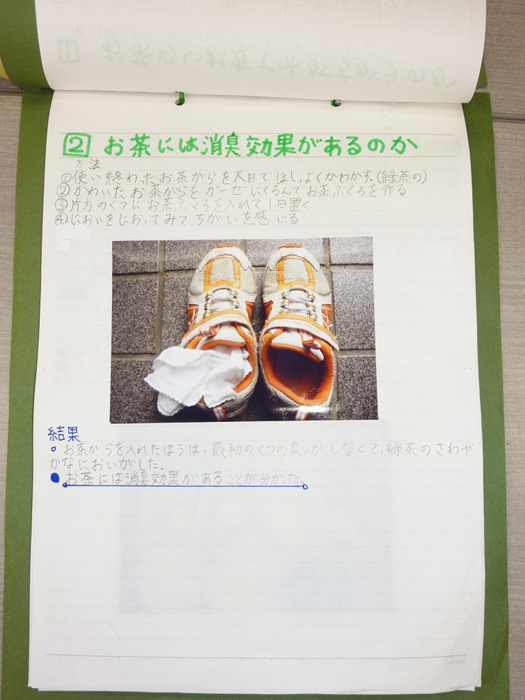 2 お茶には消臭効果があるのか
方法
①使い終わったお茶がらを天日でほし、よくかわかす。(緑茶の)
②かわいたお茶がらをガーゼにくるんでお茶ぶくろを作る
③片方のくつにお茶ぶくろを入れて1日置く
④においをにおってみてちがいを感じる
結果
○お茶がらを入れたほうは、最初のくつの臭いがしなくて、緑茶のさわや
かなにおいがした。
●お茶には消臭効果があることが分かった。